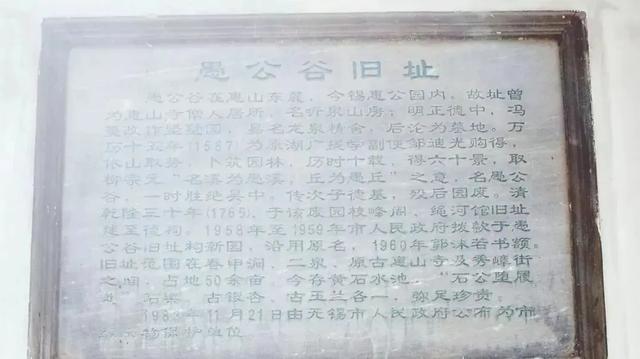 愚公谷旧址
愚公谷在惠山东麓，今锡惠公园内，故址曾
为惠山寺僧人居所，名听泉山房；明正德中，冯
夔改作 园，易名龙泉精舍，后沦为墓地。万
历十五年(1587)为原湖广提学副使邹迪光购得，
依山取势，卜筑园林，历时十载，得六十景，取
柳宗元“名溪为愚溪，丘为愚丘”之意，名愚公
谷，一时胜绝吴中，传次子德基，殁后园废。清
乾隆三十年(1765)，于该废园校峰阁、绳河馆旧址
建至德祠。1958年至1959年市人民政府拨款于愚
公谷旧址构新园，沿用原名，1960年郭沫若书额。
旧址范围在春申涧、二泉、原古惠山寺及秀嶂街
之间，占地50余亩。今存黄石水池、“石公堕履
处”石梁、古银杏、古玉兰各一，弥足珍贵。
1983年11月21日由无锡市人民政府公布为市
文物保护单位。